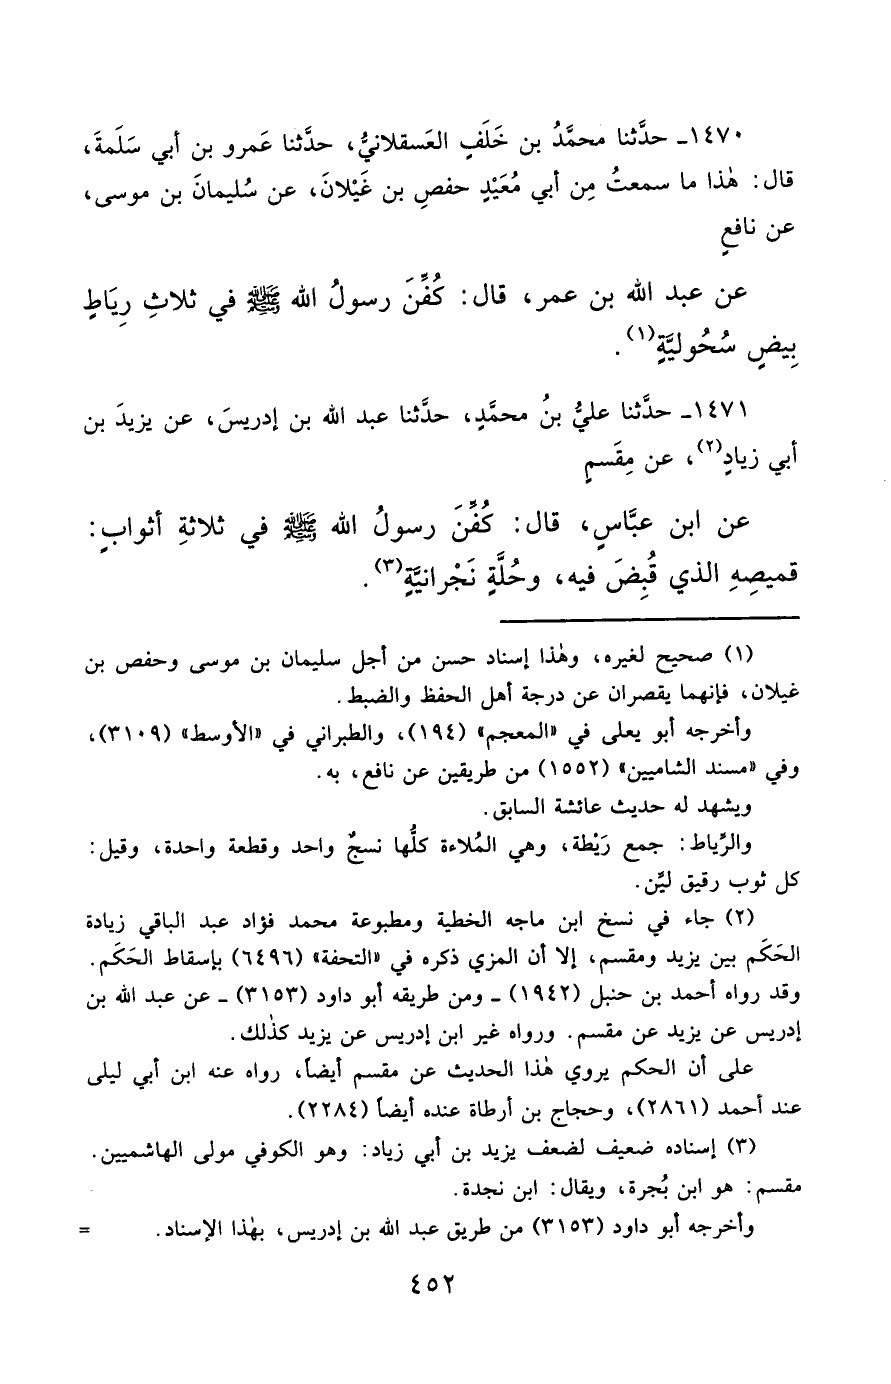 ١٤٧٠ـ حدَّثنا محمَّدُ بن خَلَفٍ العَسقلانيُّ، حدَّثنا عَمرو بن أبي سَلَمةَ،
قال: هٰذا ما سمعتُ مِن أبي مُعَيْدٍ حفصِ بن غَيْلانَ، عن سُليمانَ بن موسى،
عن نافعٍ
عن عبد الله بن عمر، قال: كُفِّنَ رسولُ الله ﷺ في ثلاثِ رِيَاطٍ
بِيضٍ سُحُوليَّةٍ(١).
١٤٧١ـ حدَّثنا عليُّ بنُ محمَّدٍ، حدَّثنا عبد الله بن إدريسَ، عن يزيدَ بن
أبي زيادٍ(٢)، عن مِقسَمٍ
عن ابن عبَّاسٍ، قال: كُفِّنَ رسولُ الله ﷺ في ثلاثةِ أثوابٍ:
قميصِهِ الذي قُبِضَ فيه، وحُلَّةٍ نَجْرانيَّةٍ(٣).
(١) صحيح لغيره، وهٰذا إسناد حسن من أجل سليمان بن موسى وحفص بن
غيلان، فإنهما يقصران عن درجة أهل الحفظ والضبط.
وأخرجه أبو يعلى في «المعجم» (١٩٤)، والطبراني في «الأوسط» (٣١٠٩)،
وفي «مسند الشاميين» (١٥٥٢) من طريقين عن نافع، به.
ويشهد له حديث عائشة السابق.
والرِّياط: جمع رَيْطة، وهي المُلاءة كلُّها نسجٌ واحد وقطعة واحدة، وقيل:
كل ثوب رقيق ليِّن.
(٢) جاء في نسخ ابن ماجه الخطية ومطبوعة محمد فؤاد عبد الباقي زيادة
الحَكَم بين يزيد ومقسم، إلا أن المزي ذكره في «التحفة» (٦٤٩٦) بإسقاط الحَكَم.
وقد رواه أحمد بن حنبل (١٩٤٢) ـ ومن طريقه أبو داود (٣١٥٣) ـ عن عبد الله بن
إدريس عن يزيد عن مقسم. ورواه غير ابن إدريس عن يزيد كذٰلك.
على أن الحكم يروي هٰذا الحديث عن مقسم أيضاً، رواه عنه ابن أبي ليلى
عند أحمد (٢٨٦١)، وحجاج بن أرطاة عنده أيضاً (٢٢٨٤).
(٣) إسناده ضعيف لضعف يزيد بن أبي زياد: وهو الكوفي مولى الهاشميين.
مقسم: هو ابن بُجرة، ويقال: ابن نجدة.
وأخرجه أبو داود (٣١٥٣) من طريق عبد الله بن إدريس، بهٰذا الإسناد. =
٤٥٢